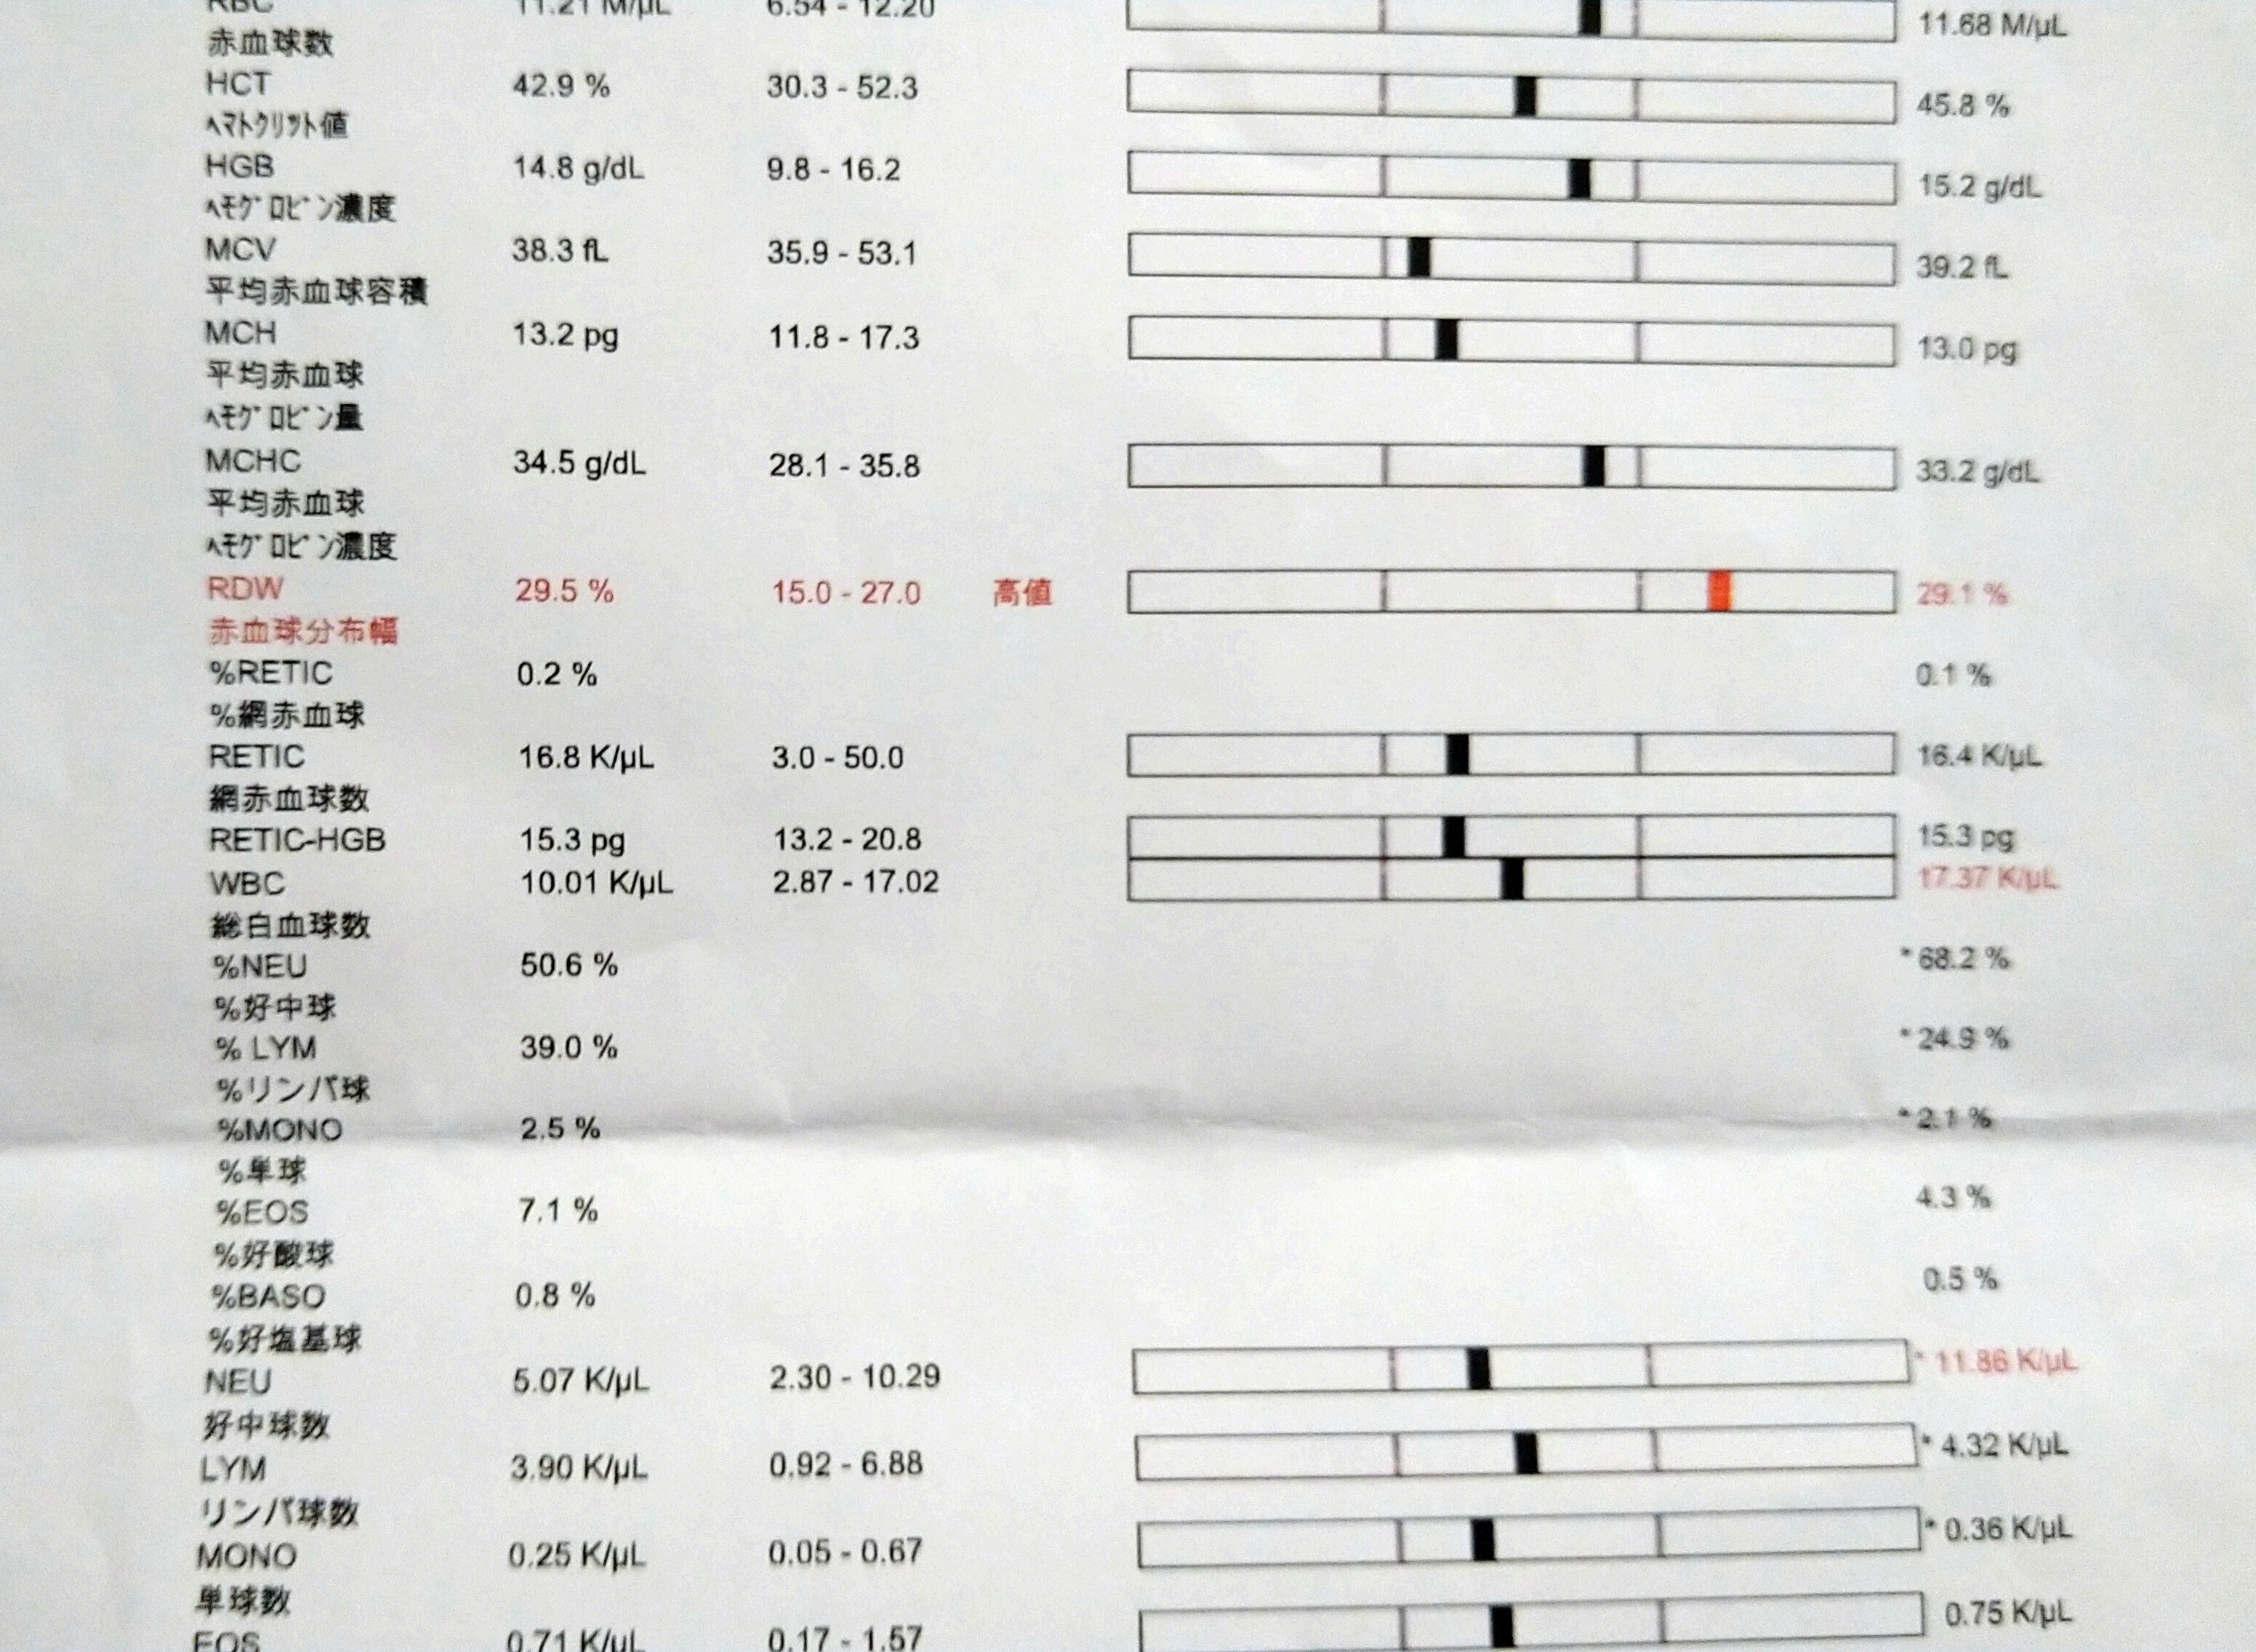 RBC 11.21 M/µL 6.54 - 12.20 11.68 M/µL
赤血球数
HCT 42.9 % 30.3 - 52.3 45.8 %
ﾍﾏﾄｸﾘｯﾄ値
HGB 14.8 g/dL 9.8 - 16.2 15.2 g/dL
ﾍﾓｸﾞﾛﾋﾞﾝ濃度
MCV 38.3 fL 35.9 - 53.1 39.2 fL
平均赤血球容積
MCH 13.2 pg 11.8 - 17.3 13.0 pg
平均赤血球
ﾍﾓｸﾞﾛﾋﾞﾝ量
MCHC 34.5 g/dL 28.1 - 35.8 33.2 g/dL
平均赤血球
ﾍﾓｸﾞﾛﾋﾞﾝ濃度
RDW 29.5 % 15.0 - 27.0 高値 29.1 %
赤血球分布幅
%RETIC 0.2 % 0.1 %
%網赤血球
RETIC 16.8 K/µL 3.0 - 50.0 16.4 K/µL
網赤血球数
RETIC-HGB 15.3 pg 13.2 - 20.8 15.3 pg
WBC 10.01 K/µL 2.87 - 17.02 17.37 K/µL
総白血球数
%NEU 50.6 % * 68.2 %
%好中球
% LYM 39.0 % * 24.9 %
%リンパ球
%MONO 2.5 % * 2.1 %
%単球
%EOS 7.1 % 4.3 %
%好酸球
%BASO 0.8 % 0.5 %
%好塩基球
NEU 5.07 K/µL 2.30 - 10.29 * 11.86 K/µL
好中球数
LYM 3.90 K/µL 0.92 - 6.88 * 4.32 K/µL
リンパ球数
MONO 0.25 K/µL 0.05 - 0.67 * 0.36 K/µL
単球数
EOS 0.71 K/µL 0.17 - 1.57 0.75 K/µL